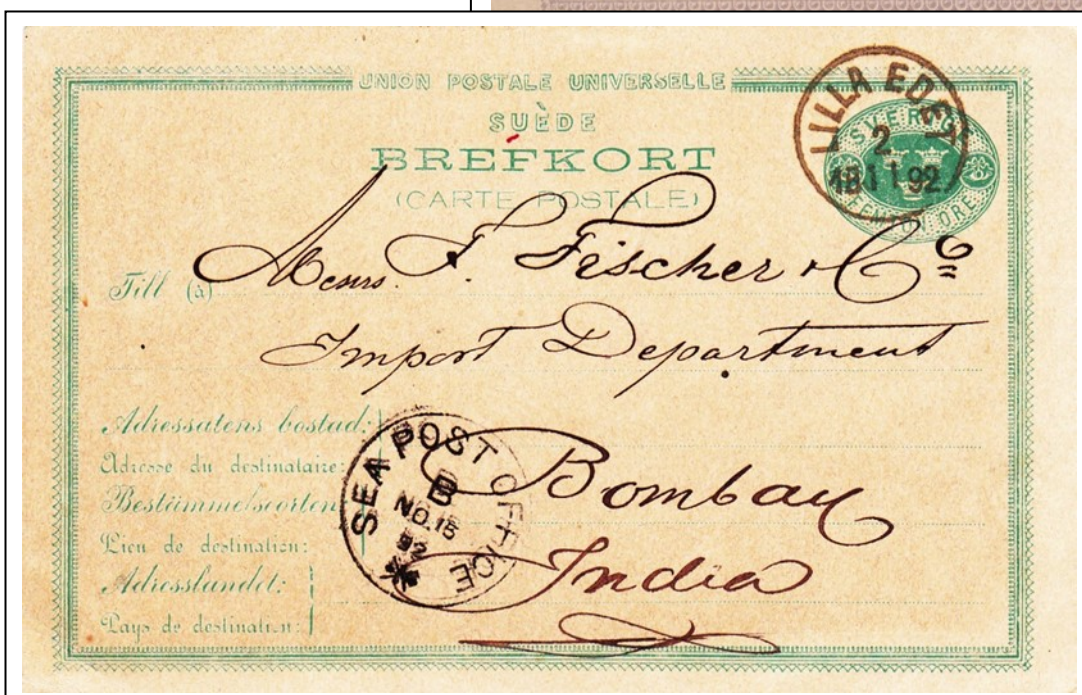 UNION POSTALE UNIVERSELLE
SUÈDE
BREFKORT
(CARTE POSTALE)
LILLA EDET
2
1811 92
SVERIGE
FEM ÖRE
Till (à) Messrs. F. Fischer & Co
Import Department
Adressatens bostad:
Adresse du destinataire:
Bestämmelseorten
Lieu de destination:
Adresslandet:
Pays de destination:
SEA POST OFFICE
B
NO.15
92
Bombay
India